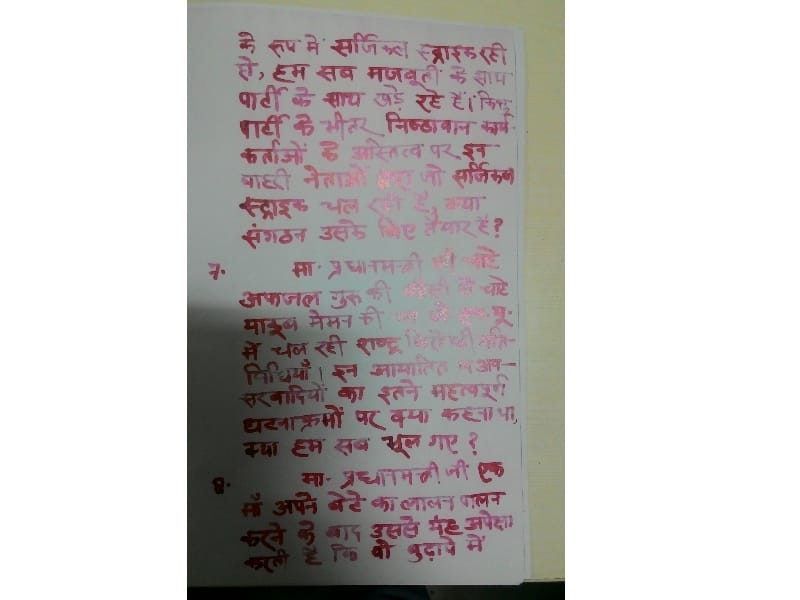 के रूप में सर्जिकल स्ट्राइक रही
हो, हम सब मजबूती के साथ
पार्टी के साथ खड़े रहे हैं। किन्तु
पार्टी के भीतर निष्ठावान कार्य-
कर्ताओं के अस्तित्व पर इन
बाहरी नेताओं द्वारा जो सर्जिकल
स्ट्राइक चल रही है, क्या
संगठन उसके लिए तैयार है?
7. मा. प्रधानमन्त्री जी चाहे
अफजल गुरू की फाँसी हो चाहे
याकूब मेमन की
में चल रही राष्ट्र विरोधी गति-
विधियाँ। इन आयातित व अव-
सरवादियों का इतने महत्वपूर्ण
घटनाक्रमों पर क्या कहना था,
क्या हम सब भूल गए?
8. मा. प्रधानमन्त्री जी एक
माँ अपने बेटे का लालन पालन
करने के बाद उससे यह अपेक्षा
करती है कि वो बुढ़ापे में